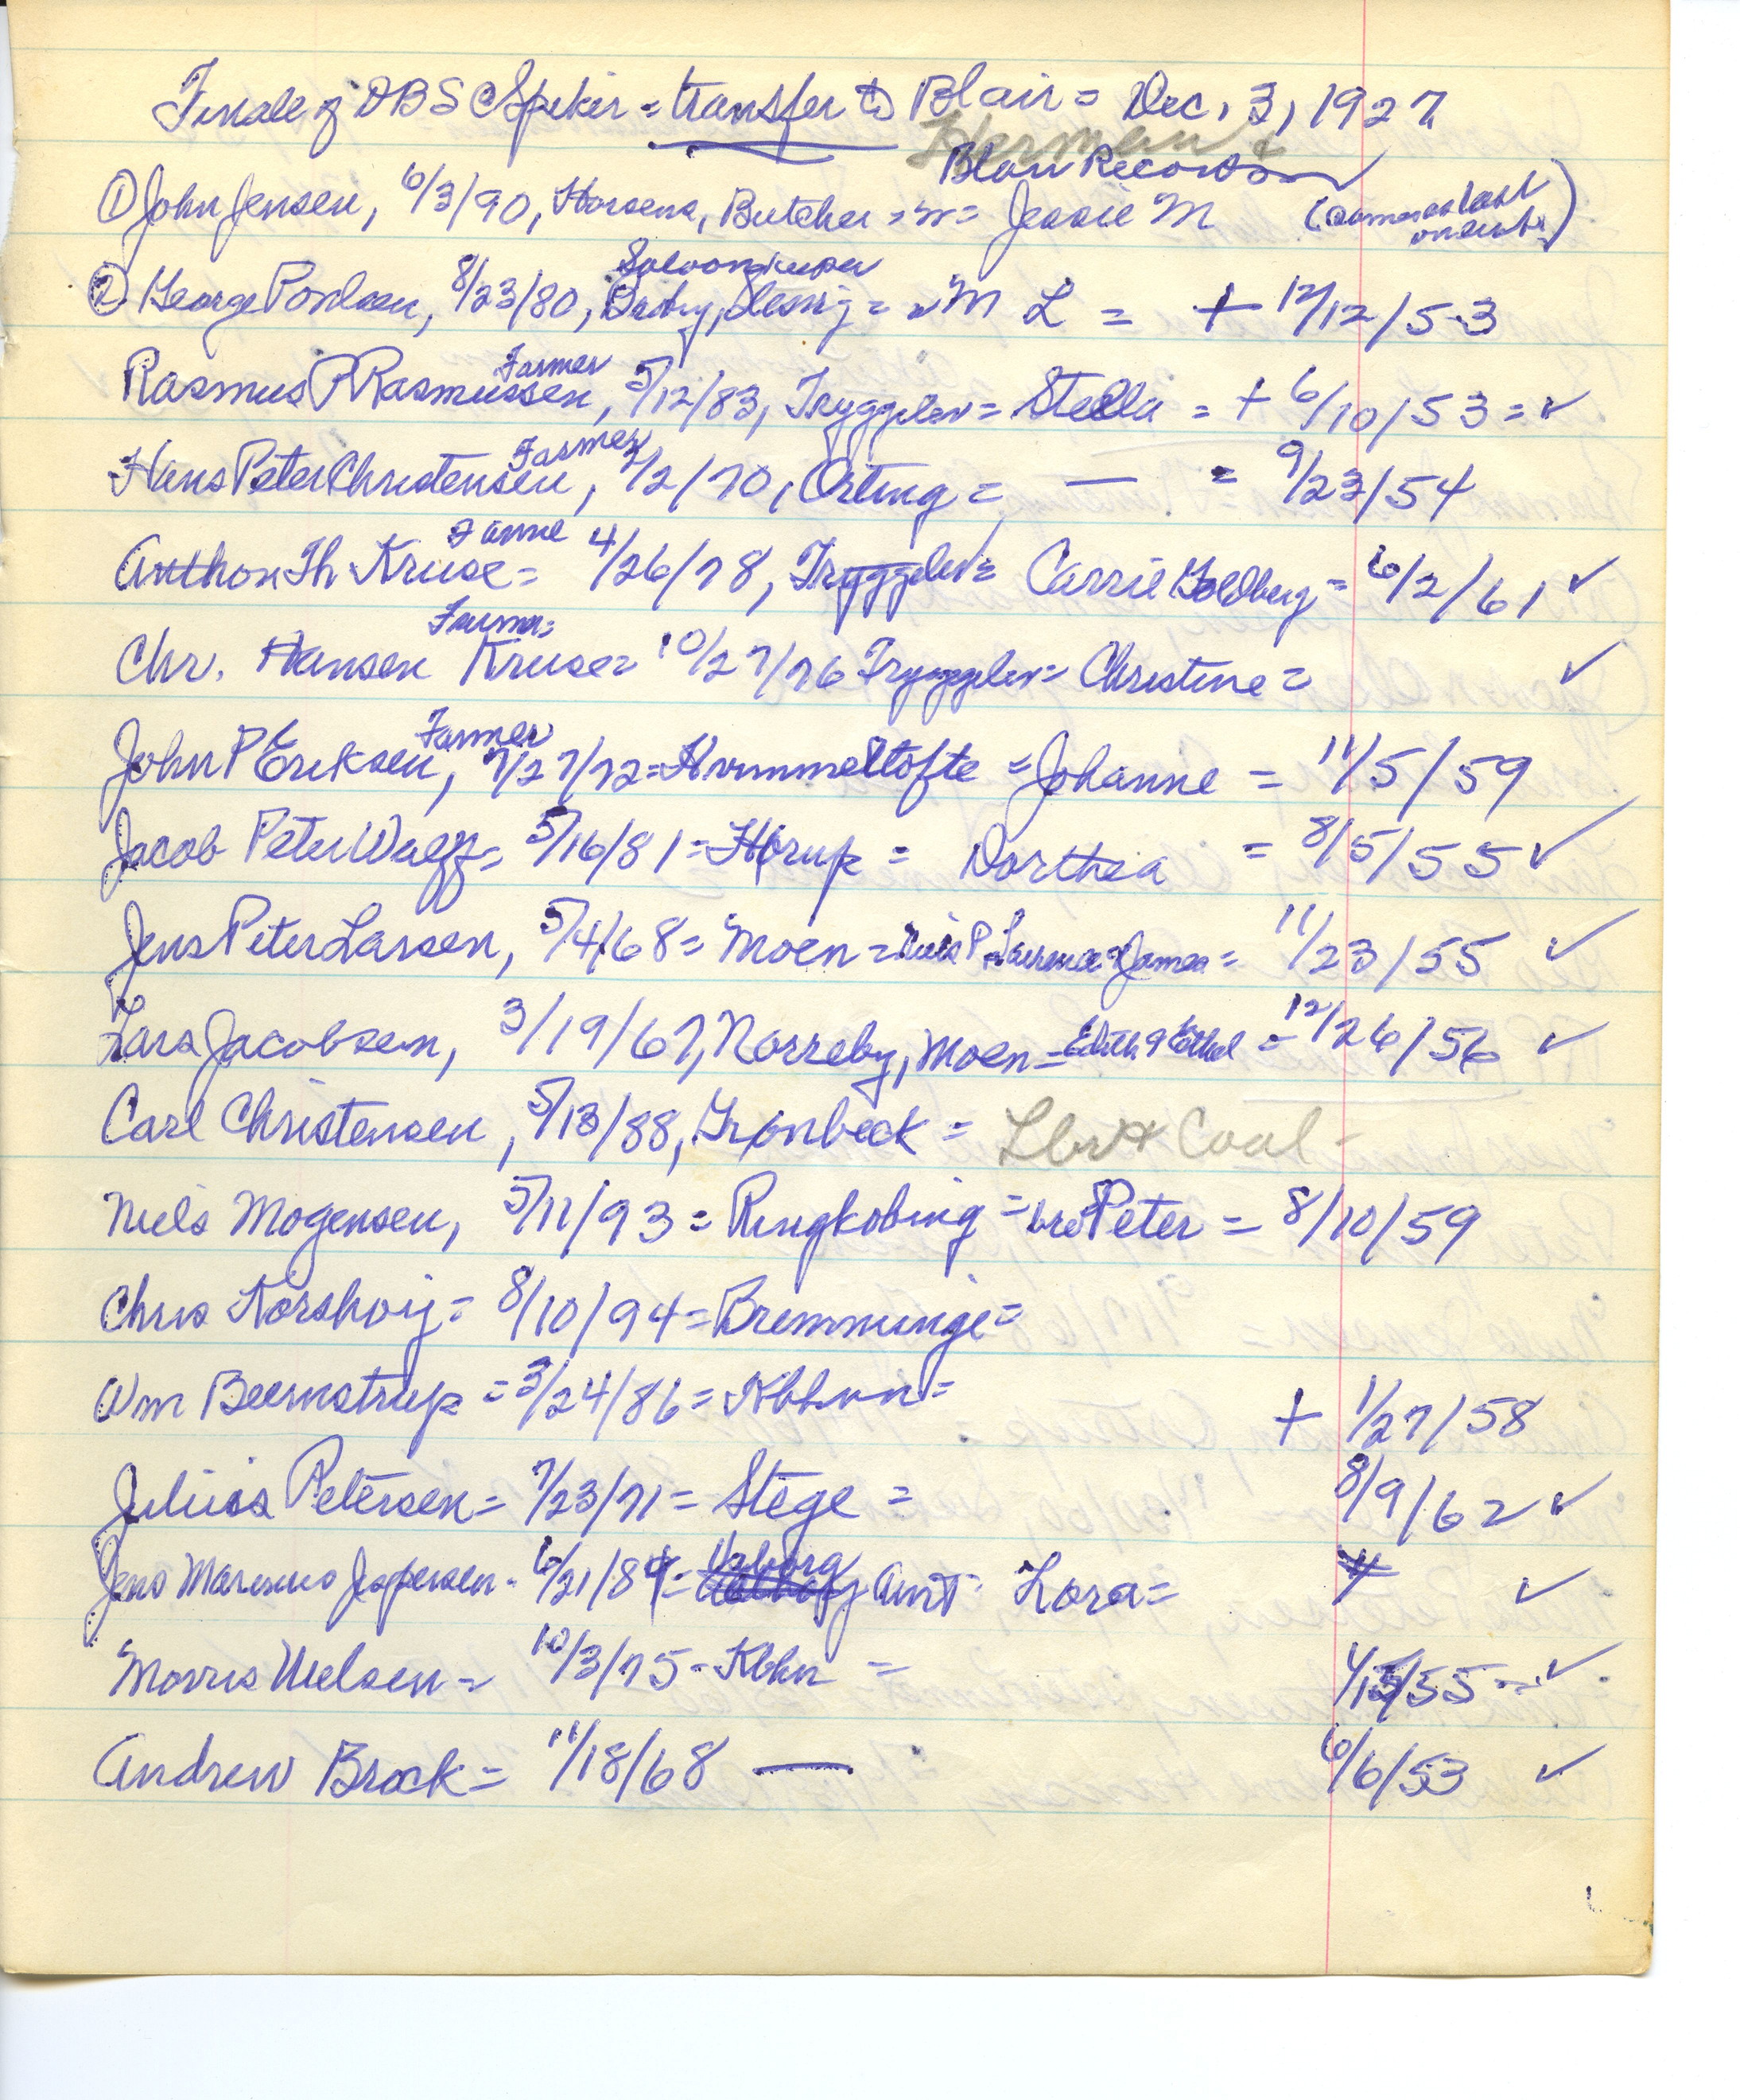 Finale of DBS C Spiker = transfer to Blair = Dec. 3, 1927.
Herman +
Blair Records
① John Jensen, 6/3/90, Horsens, Butcher = w = Jessie M (same as last
on list)
Saloonkeeper
② George Poulsen, 8/23/80, = w M L = + 12/12/53
Farmer
Rasmus P Rasmussen, 5/12/83, Tryggelev = Stella = + 6/10/53 = ✓
Farmer
Hans Peter Christensen, 2/2/70, Orting = — = 9/23/54
Farme
Anthon Th Kruse = 4/26/78, Tryggelev = Carrie Goldberg = 6/2/61 ✓
Farmer =
Chr. Hansen Kruse = 10/27/76 Tryggelev = Christine = ✓
Farmer
John P Eriksen, 7/27/72 = Hummeltofte = Johanne = 11/5/59
Jacob Peter Wulff = 5/16/81 = Hørup = Dorthea = 8/5/55 ✓
Jens Peter Larsen, 5/4/68 = Moen = Niels P. Laurence & James = 11/23/55 ✓
Lars Jacobsen, 3/19/67, Norreby, Moen = Edith & Ethel = 12/26/56 ✓
Carl Christensen, 5/13/88, Grønbeck = Lbr & Coal -
Niels Mogensen, 5/11/93 = Ringkobing = bro Peter = 8/10/59
Chris Korshoij = 8/10/94 = Bremminge =
Wm Beernstrup = 3/24/86 = Kbhvn = + 1/27/58
Julius Petersen = 7/23/71 = Stege = 8/9/62 ✓
Jens Marinus Jespersen - 6/21/84 = Viborg Amt - Lora = ✓
Morris Nielsen = 10/3/75 - Kbhn = 1/15/55 = ✓
Andrew Brock = 11/18/68 — 6/6/53 ✓